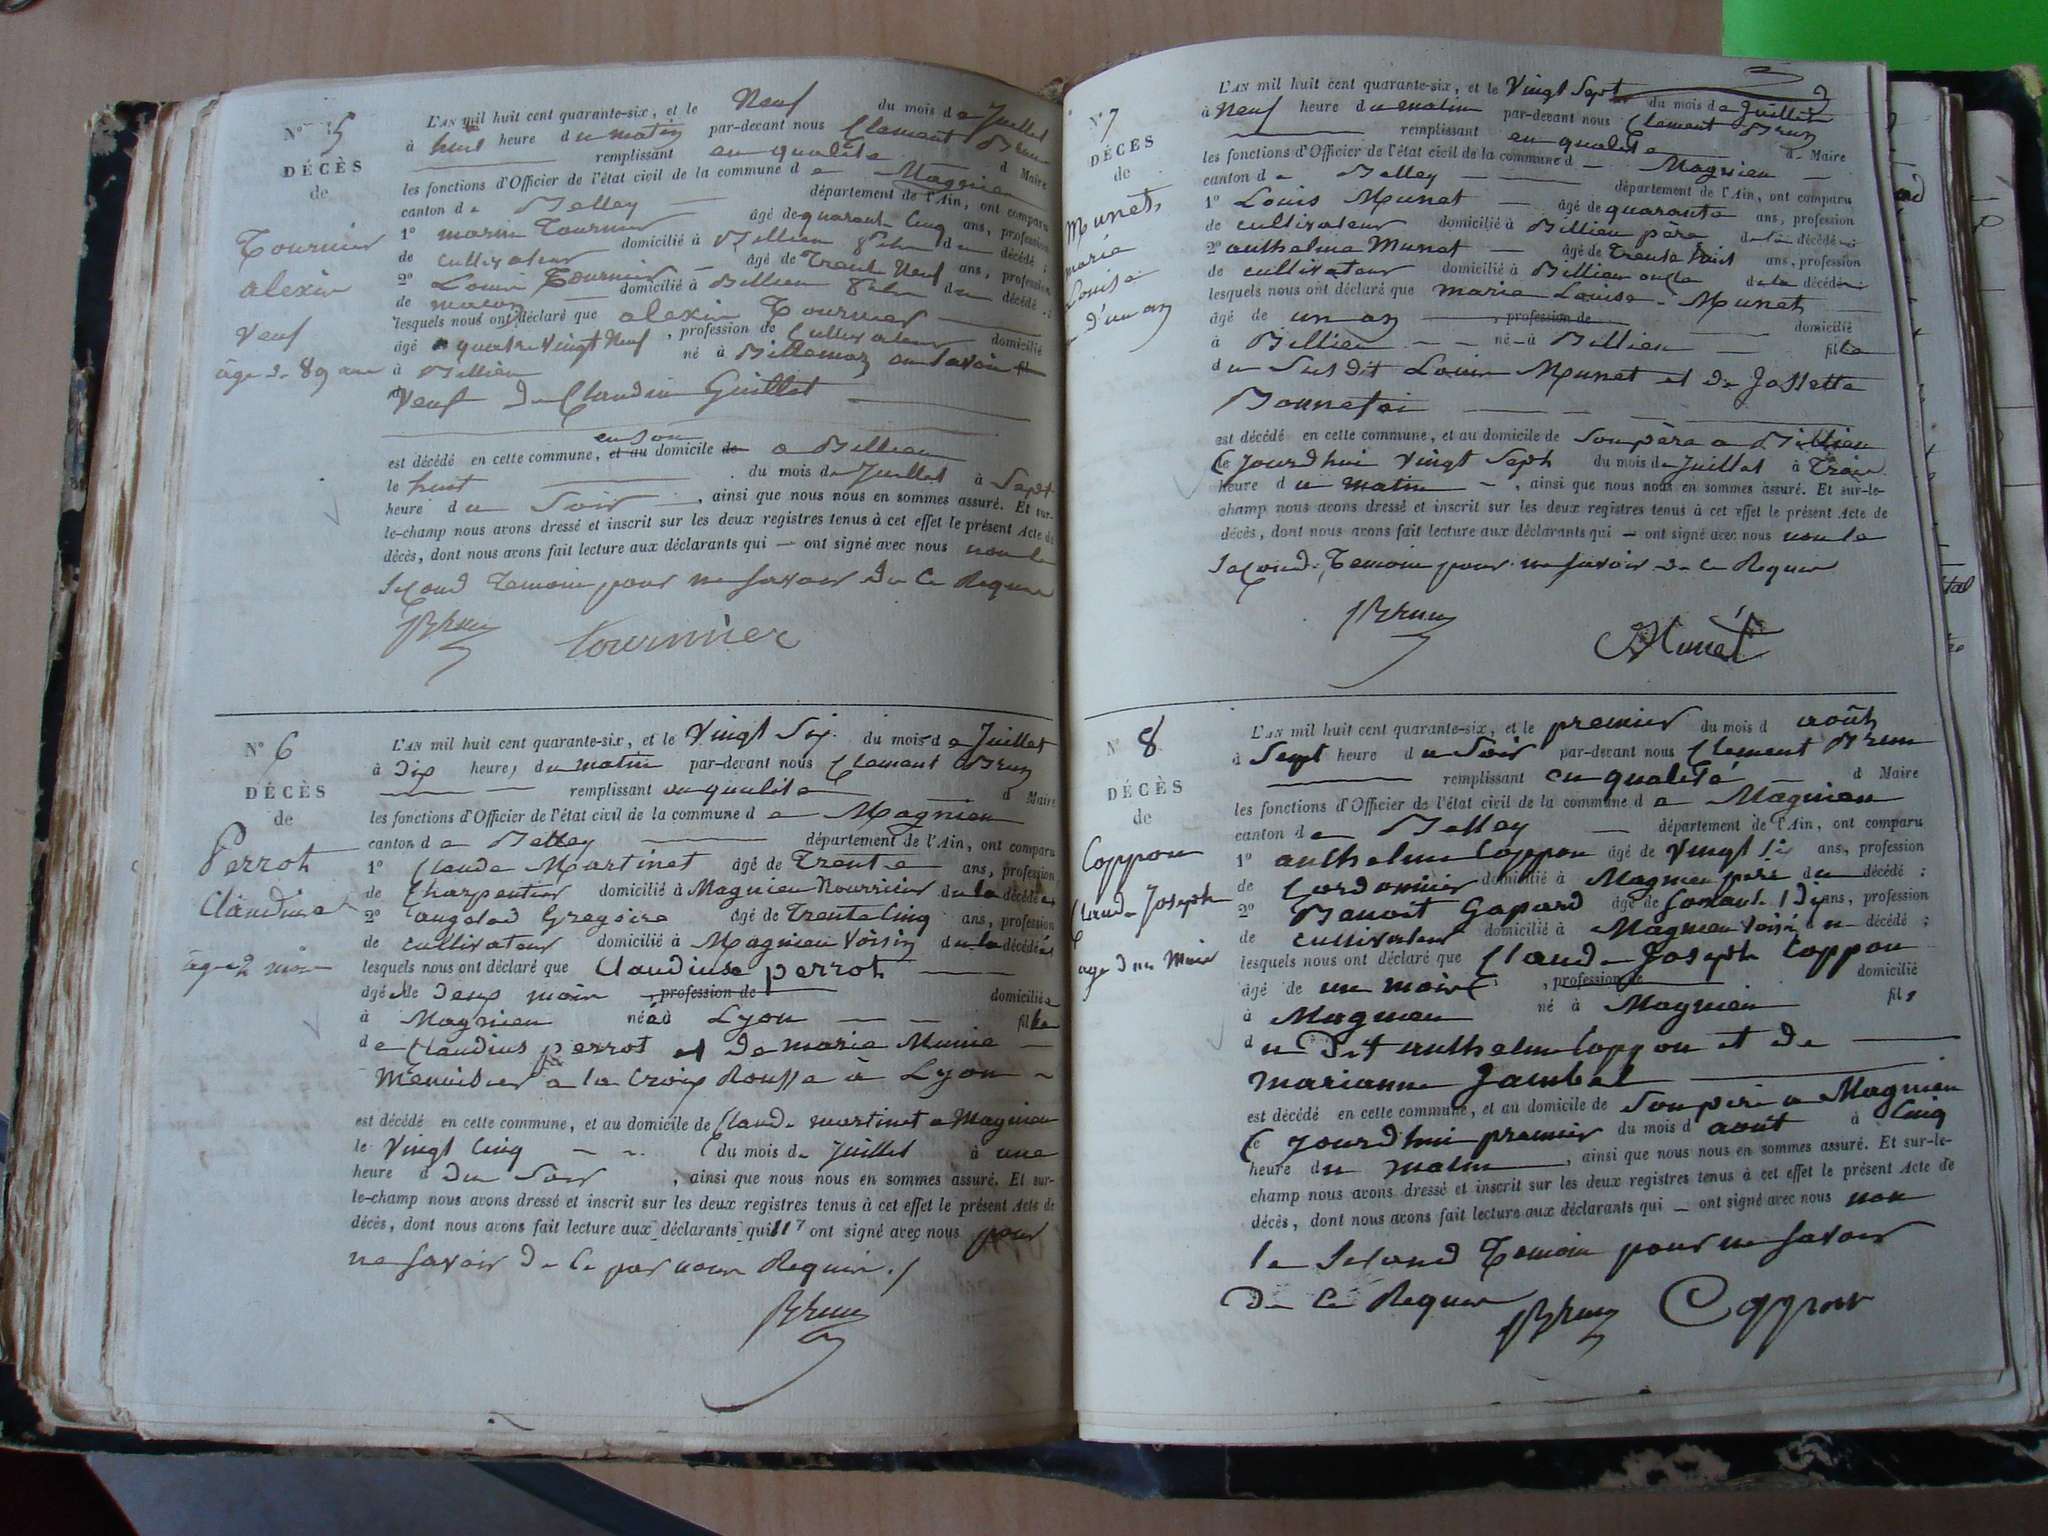 N° 5
DÉCÈS
de
Tournier
alexis
Veuf
age de 89 ans
L'AN mil huit cent quarante-six, et le Neuf du mois de Juillet
à huit heure du matin par-devant nous Clement Brun
remplissant en qualité d Maire
les fonctions d'Officier de l'état civil de la commune de Magnieu
canton de Belley département de l'Ain, ont comparu
1° Tournier âgé de quarante Cinq ans, profession
de cultivateur domicilié à Billieu du décédé ;
2° Louis Tournier âgé de Trente Neuf ans, profession
de macon domicilié à Billieu du décédé ;
lesquels nous ont déclaré que alexis Tournier
âgé quatre Vingt Neuf , profession de Cultivateur domicilié
à Billieu né à Billemaz en Savoie fils
Veuf de Claudine Guillot
en son
est décédé en cette commune, et au domicile de a Billieu
le huit du mois de Juillet à Sept
heure du Soir , ainsi que nous nous en sommes assuré. Et sur-
le-champ nous avons dressé et inscrit sur les deux registres tenus à cet effet le présent Acte de
décès, dont nous avons fait lecture aux déclarants qui — ont signé avec nous non le
second Temoin pour ne savoir de ce Requis
Brun Tournier
N° 6
DÉCÈS
de
Perrot
Claudine
age 2 mois
L'AN mil huit cent quarante-six, et le Vingt Six du mois de Juillet
à dix heures du matin par-devant nous Clement Brun
remplissant en qualité d Maire
les fonctions d'Officier de l'état civil de la commune de Magnieu
canton de Belley département de l'Ain, ont comparu
1° Claude Martinet âgé de Trente ans, profession
de Charpentier domicilié à Magnieu Nourricier de la décédée
2° Gregoire âgé de Trente Cinq ans, profession
de cultivateur domicilié à Magnieu Voisin de la décédée
lesquels nous ont déclaré que Claudine perrot
âgé de deux mois , profession de domiciliée
à Magnieu née à Lyon fille
de Claudius perrot et de marie Munie
Menuisier a la Croix Rousse à Lyon
est décédé en cette commune, et au domicile de Claude martinet a Magnieu
le Vingt Cinq du mois de Juillet à une
heure d du Soir , ainsi que nous nous en sommes assuré. Et sur-
le-champ nous avons dressé et inscrit sur les deux registres tenus à cet effet le présent Acte de
décès, dont nous avons fait lecture aux déclarants qui ont signé avec nous pour
ne savoir de ce par nous Requis ./
Brun
N° 7
DÉCÈS
de
Munet
marie
Louise
d'un an
L'AN mil huit cent quarante-six, et le Vingt Sept du mois de Juillet
à Neuf heure du matin par-devant nous Clement Brun
remplissant en qualité de Maire
les fonctions d'Officier de l'état civil de la commune d Magnieu
canton de Belley département de l'Ain, ont comparu
1° Louis Munet âgé de quarante ans, profession
de cultivateur domicilié à Billieu pere de la décédé
2° anthelme Munet âgé de Trente huit ans, profession
de cultivateur domicilié à Billieu oncle de la décédé
lesquels nous ont déclaré que marie Louise Munet
âgé de un an , profession de domicilié
à Billieu né à Billieu fille
du Susdit Louis Munet et de Josette
Bonnefoi
est décédé en cette commune, et au domicile de Son père a Billieu
le Jourdhui Vingt Sept du mois de Juillet à Trois
heure du matin , ainsi que nous nous en sommes assuré. Et sur-le-
champ nous avons dressé et inscrit sur les deux registres tenus à cet effet le présent Acte de
décès, dont nous avons fait lecture aux déclarants qui — ont signé avec nous non le
second Temoin pour ne savoir de ce Requis
Brun Munet
N° 8
DÉCÈS
de
Coppon
Claude Joseph
age d'un Mois
L'AN mil huit cent quarante-six, et le premier du mois d août
à Sept heure du Soir par-devant nous Clement Brun
remplissant en qualité d Maire
les fonctions d'Officier de l'état civil de la commune de Magnieu
canton de Belley département de l'Ain, ont comparu
1° anthelme Coppon âgé de Vingt Six ans, profession
de Cordonnier domicilié à Magnieu pere du décédé ;
2° Benoit Gapard âgé de Soixante Dix ans, profession
de cultivateur domicilié à Magnieu Voisin du décédé ;
lesquels nous ont déclaré que Claude Joseph Coppon
âgé de un mois , profession de domicilié
à Magnieu né à Magnieu fils
du Dit anthelme Coppon et de
marianne Jambel
est décédé en cette commune, et au domicile de Son pere a Magnieu
le Jourdhui premier du mois d août à Cinq
heure du matin , ainsi que nous nous en sommes assuré. Et sur-le-
champ nous avons dressé et inscrit sur les deux registres tenus à cet effet le présent Acte de
décès, dont nous avons fait lecture aux déclarants qui — ont signé avec nous non
le Second Temoin pour ne savoir
De ce Requis Brun Coppon